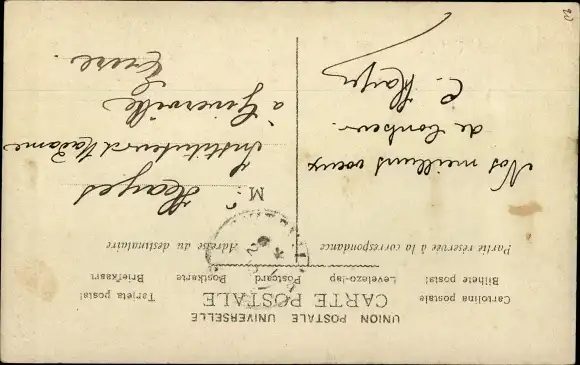 UNION POSTALE UNIVERSELLE
CARTE POSTALE
Cartolina postale Tarjeta postal
Bilhete postal Levelező-lap Postcard Postkarte Briefkaart
Partie réservée à la correspondance
Adresse du destinataire
Nos meilleurs voeux
de bonheur.
M.
Instituteur et Madame
à Giverville
Eure.
20